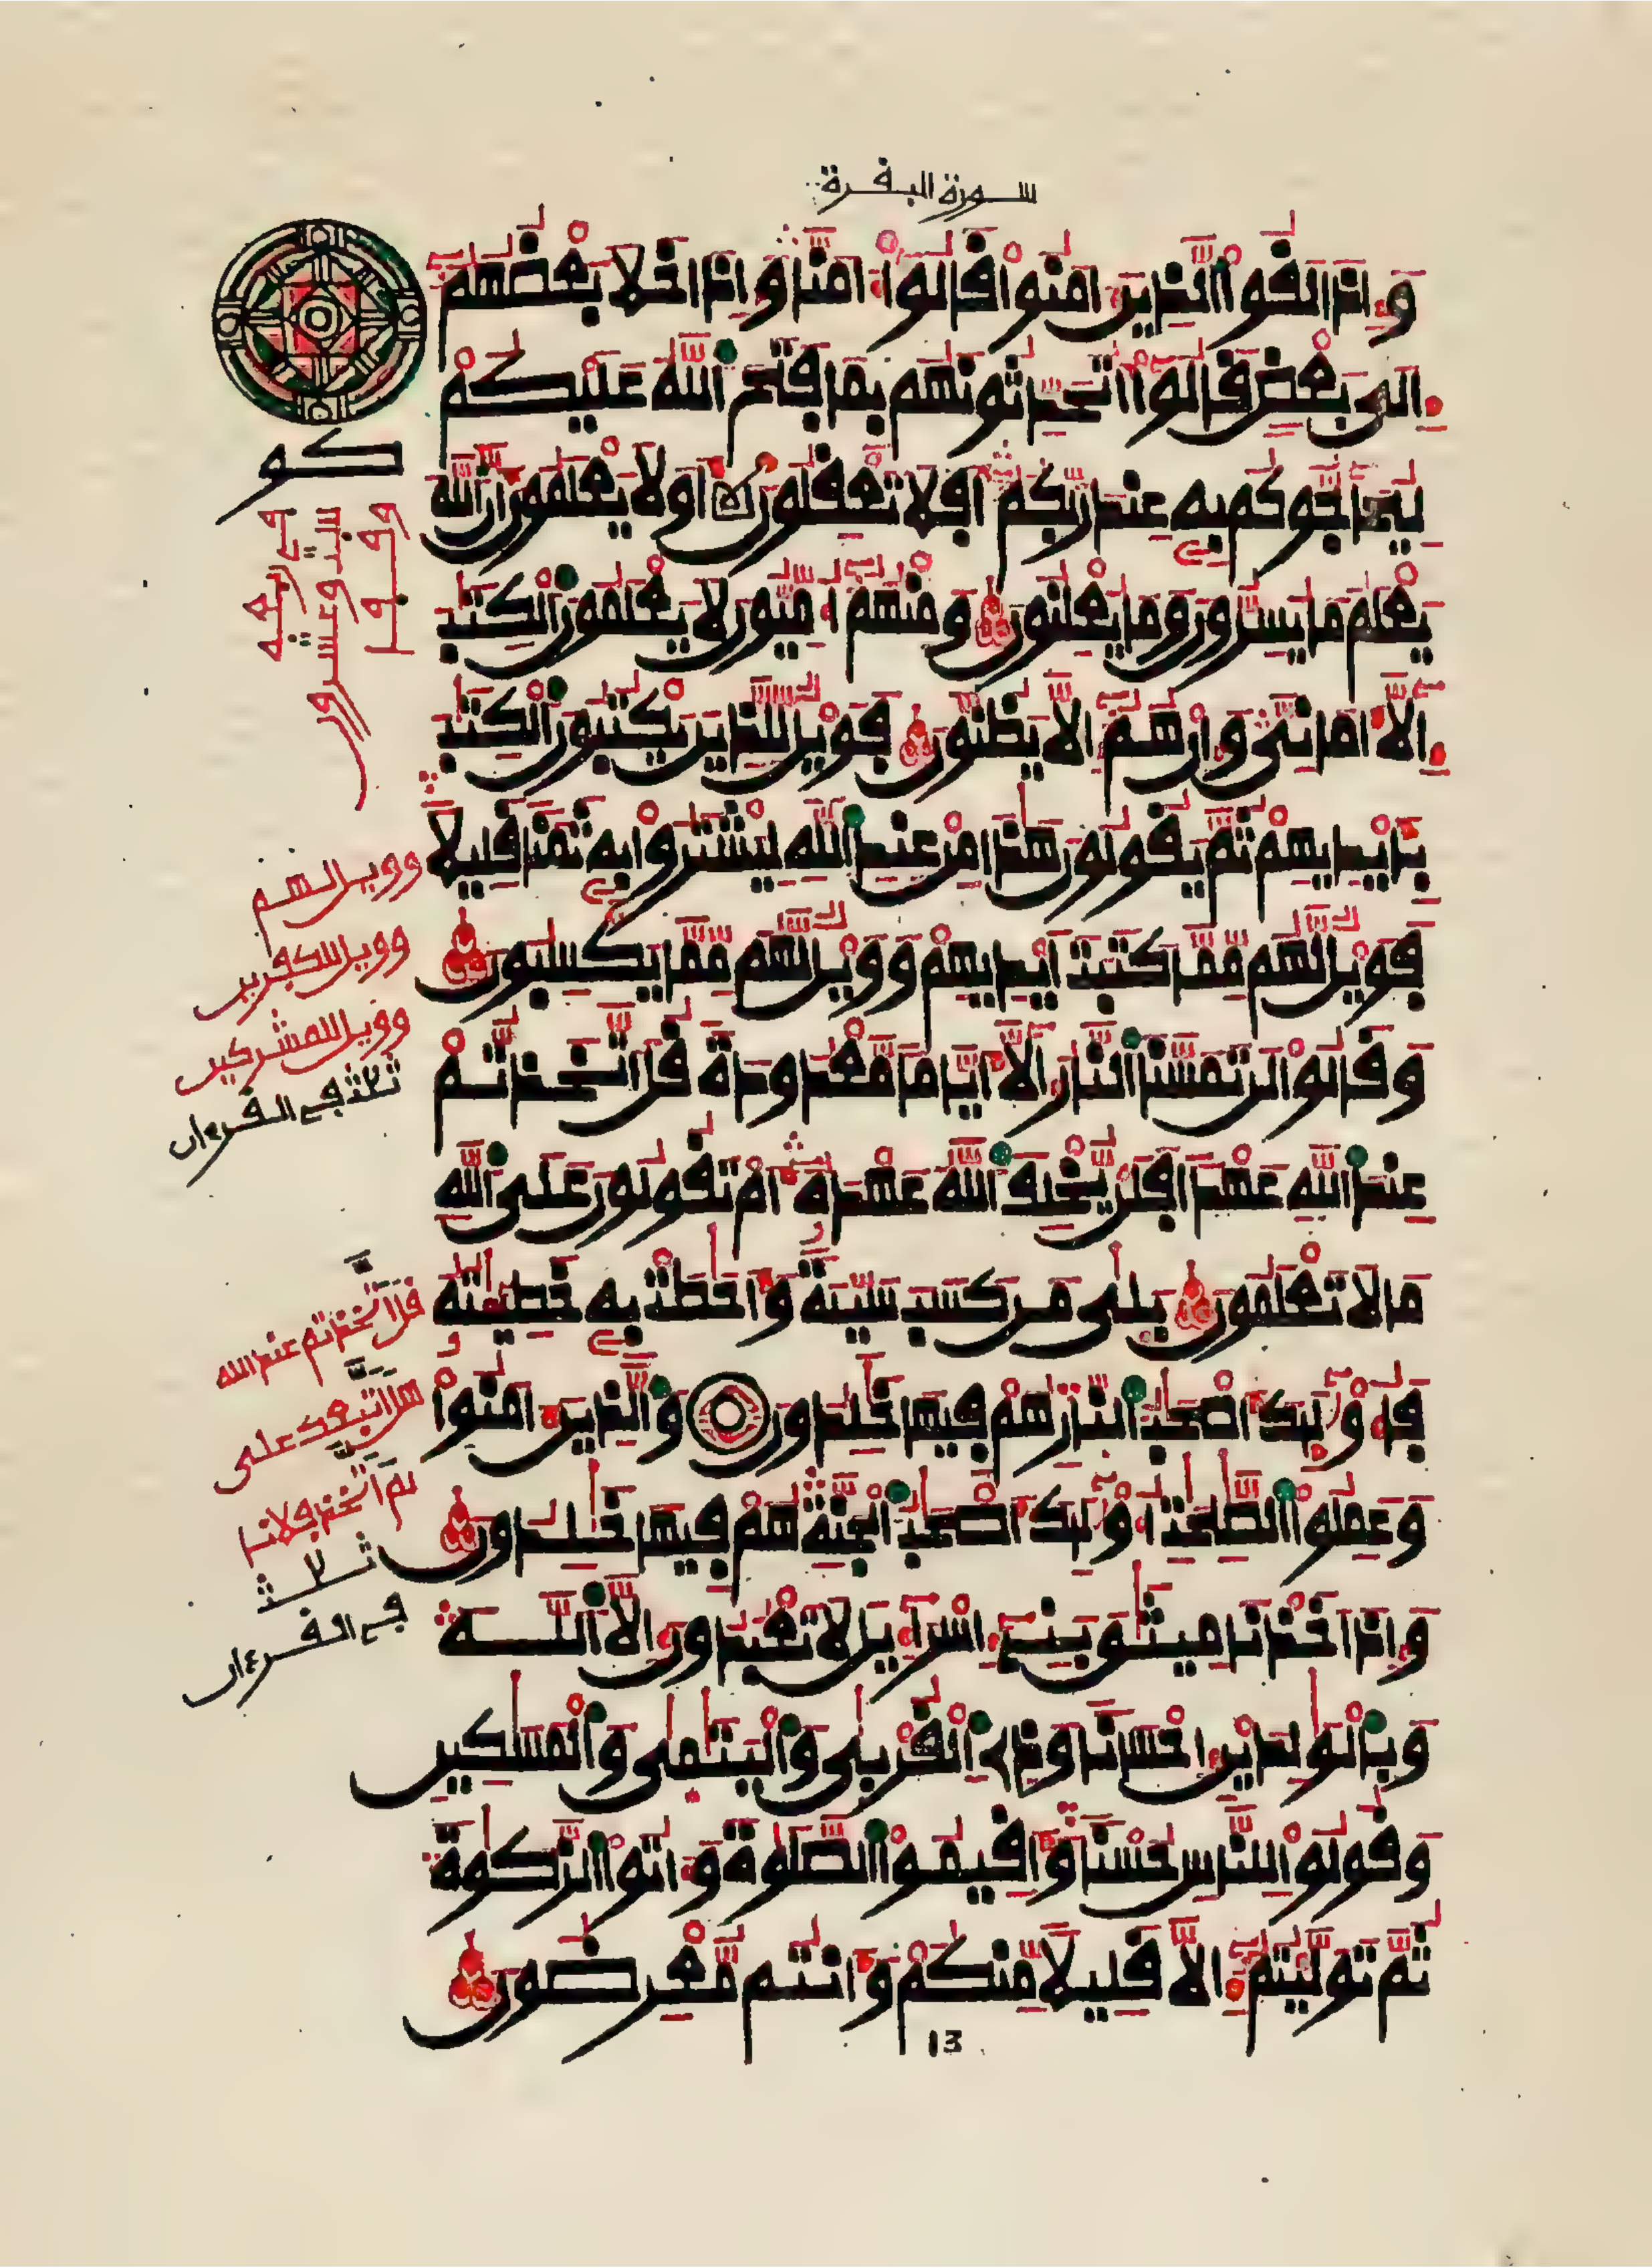 سورة البقرة
وإذا لقوا الذين ءامنوا قالوا ءامنا وإذا خلا بعضهم
إلى بعض قالوا أتحدثونهم بما فتح الله عليكم
ليحاجوكم به عند ربكم أفلا تعقلون أولا يعلمون أن الله
يعلم ما يسرون وما يعلنون ومنهم أميون لا يعلمون الكتب
إلا أماني وإن هم إلا يظنون فويل للذين يكتبون الكتب
بأيديهم ثم يقولون هذا من عند الله ليشتروا به ثمنا قليلا
فويل لهم مما كتبت أيديهم وويل لهم مما يكسبون
وقالوا لن تمسنا النار إلا أياما معدودة قل اتخذتم
عند الله عهدا فلن يخلف الله عهده أم تقولون على الله
ما لا تعلمون بلى من كسب سيئة وأحطت به خطيئته
فأولئك أصحب النار هم فيها خلدون والذين ءامنوا
وعملوا الصلحت أولئك أصحب الجنة هم فيها خلدون
وإذ أخذنا ميثق بني إسراءيل لا تعبدون إلا الله
وبالولدين إحسانا وذي القربى واليتمى والمسكين
وقولوا للناس حسنا وأقيموا الصلوة وءاتوا الزكوة
ثم توليتم إلا قليلا منكم وأنتم معرضون
13
كو
وويل لهم
وويل للكفرين
وويل للمشركين
ثلثة في القرءان
قل اتخذتم عند الله
هل اتبعك على
في القرءان